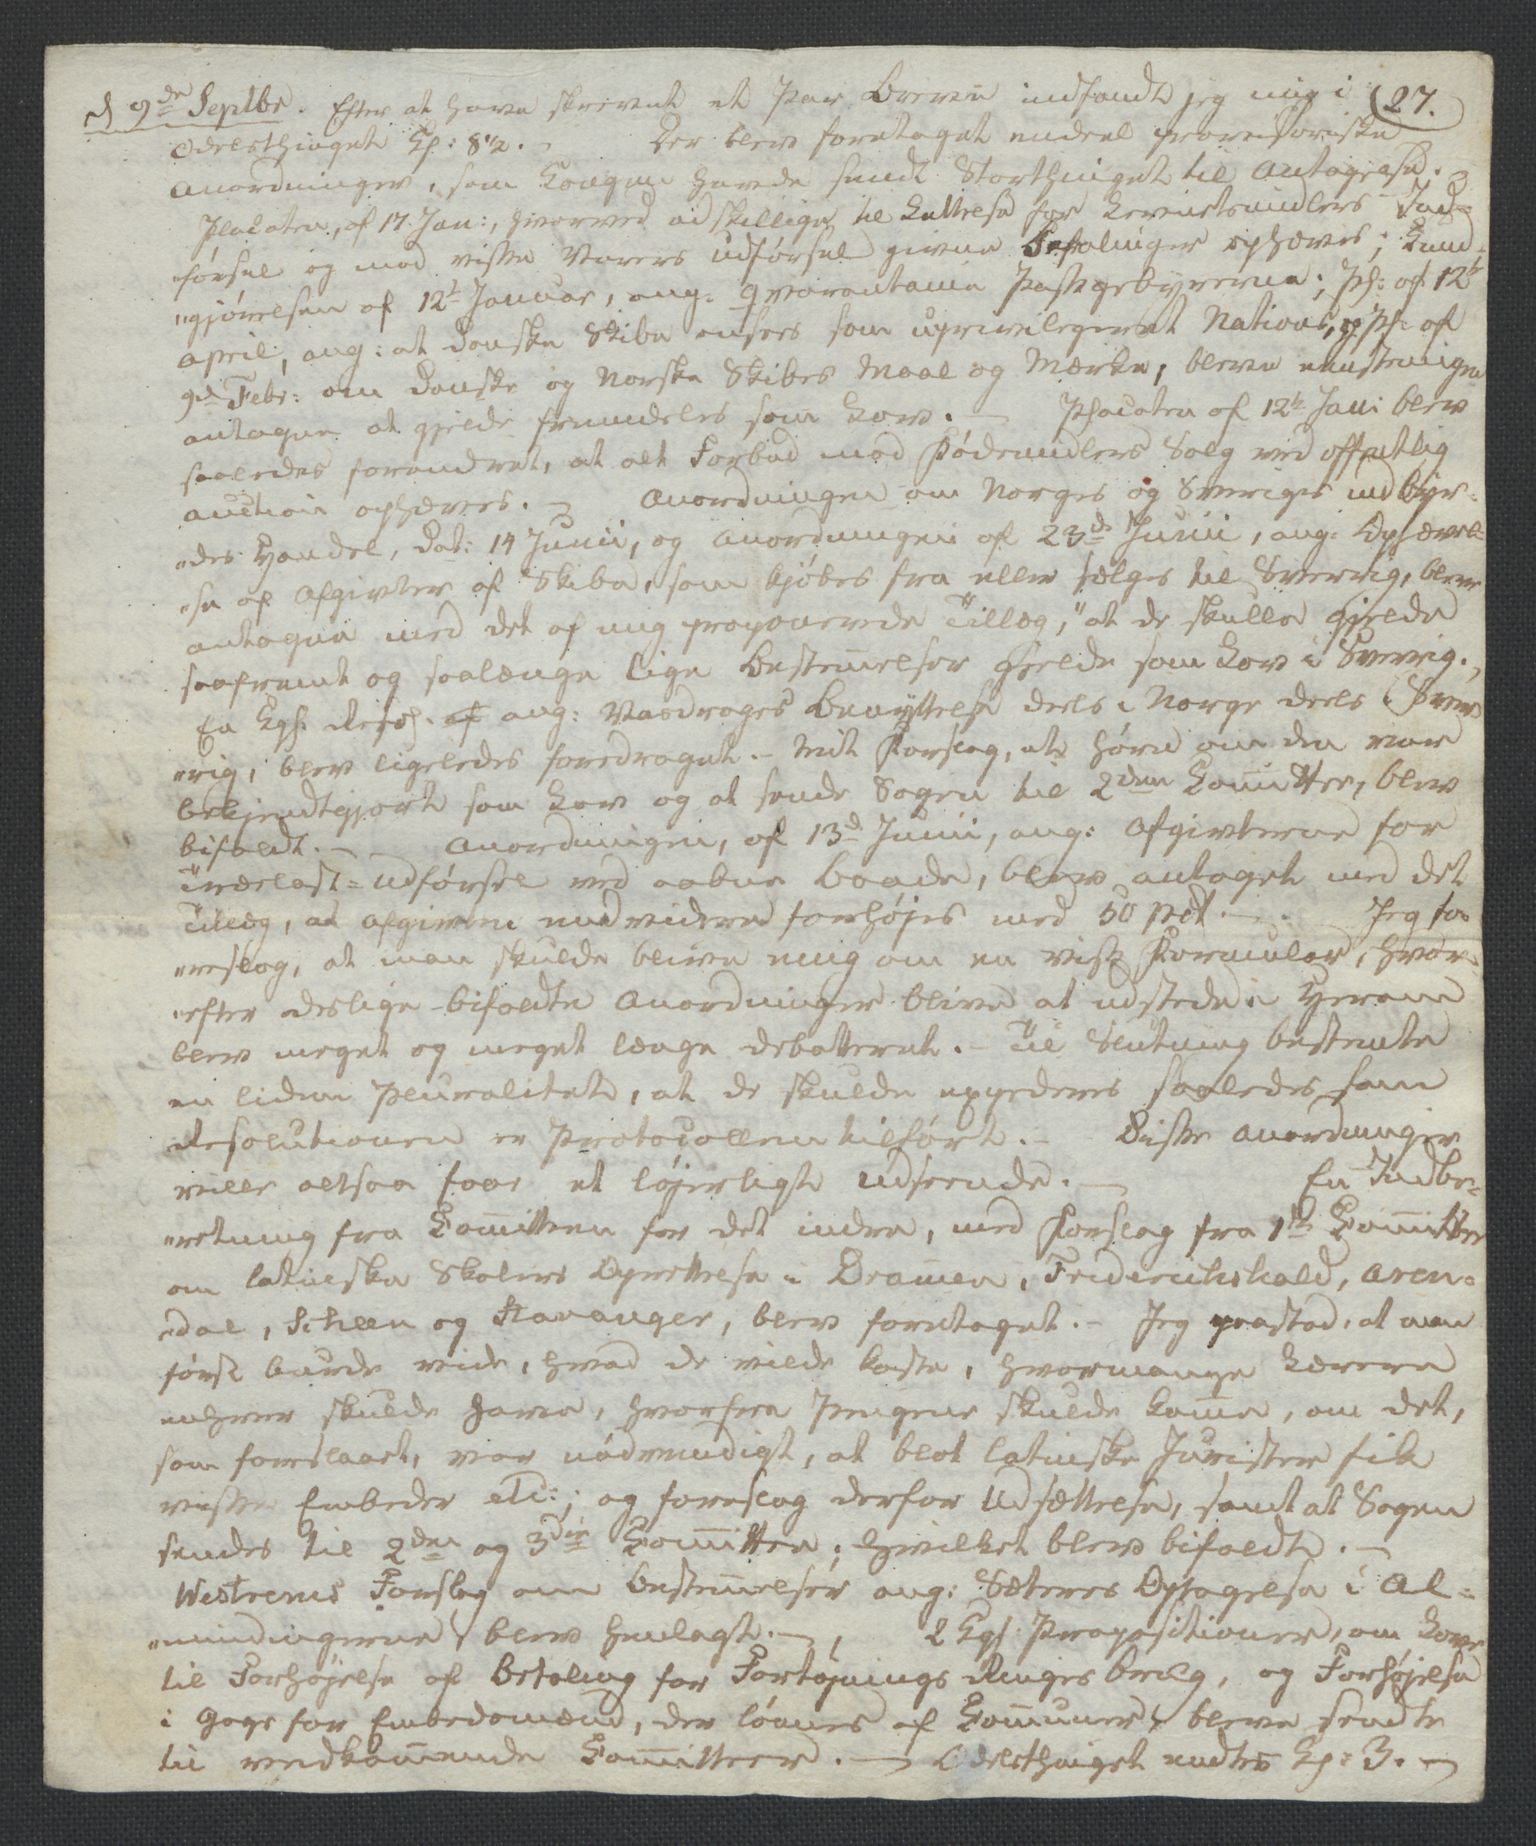 d 9de Septbr. Efter at have skrevet et Par Breve indfandt jeg mig i 27.
Odelsthinget Kl: 8½. - Der blev foretaget endeel provisoriske
Anordninger, som Kongen havde sendt Storthinget til Antagelse. -
Placaten, af 17 Jan:, hvorved adskillige til Lettelse for Levnetsmidlers Ind-
førsel og mod visse Varers Udførsel givne Befalinger ophæves; Kund-
"gjørelsen af 12te Januar, ang: Qvarantaine Pasgebyrerne; Pl: af 12te
April, ang: at danske Skibe ansees som upriviligeret Nations, og Pl: af
9de Febr: om Danske og Norske Skibes Maal og Mærke, bleve eenstemigen
antagne at gjelde fremdeles som Lov. - Placaten af 12te Jan: blev
saaledes forandret, at alt Forbud mod Fødemidlers Salg ved offentlig
Auction ophæves. - Anordningen om Norges og Sveriges indbyr-
"des Handel, dat: 14 Junii, og Anordningen af 23de Junii, ang: Ophævel-
"se af Afgivter af Skibe, som kjøbes fra eller sælges til Sverrig, bleve
antagne med det af mig proponerede Tillæg, "at de skulle gjelde
saafremt og saalænge lige Bestemmelser gjelde som Lov i Sverrig.,
En Kgl: Resol. af ang: Vasdrages Benyttelse deels i Norge deels i Sver-
"rig, blev ligeledes foredraget. - Mit Forslag, at høre om den var
bekjendtgjort som Lov og at sende Sagen til 2den Committee, blev
bifaldt. - Anordningen, af 13de Junii, ang: Afgivterne for
Trælast-Udførsel ved aabne Baade, blev antaget med det
Tillæg, at Afgivten endvidere forhøjes med 50 pCt. - Jeg fo-
"reslog, at man skulde blive enig om en vis Formular, hvor-
"efter deslige bifaldte Anordninger blive at udstede. Herom
blev meget og meget længe debatteret. - Til Slutning bestemte
en liden Pluralitet, at de skulde expederes saaledes som
Resolutionen er Protocollen tilført. - Disse Anordninger
ville altsaa faae et løjerligt Udseende. - En Indbe-
"retning fra Comitteen for det indre, med Forslag fra 1ste Committee
om latinske Skolers Oprettelse i Drammen, Friderichshald, Aren-
"dal, Scheen og Stavanger, blev foretaget. - Jeg paastod, at man
først burde vide, hvad de vilde koste, hvormange Lærere
enhver skulde have, hvorfra Pengene skulde komme, om det,
som foreslaaet, var nødvendigt, at blot latinske Jurister fik
visse Embeder etc:; og foreslog derfor Udsættelse, samt at Sagen
sendes til 2den og 3die Committee; hvilket blev bifaldt. -
Westrems Forslag om Bestemmelser ang: Sæteres Optagelse i Al-
"mindingerne blev henlagt. - , 2 Kgl: Propositioner, om Love
til Forhøjelse af Betaling for Fortøjnings Ringes Brug, og Forhøjelse
i Gage for Embedsmænd, der lønnes af Communer, bleve sendte
til vedkommende Committeer. - Odelsthinget endtes Kl: 3. -